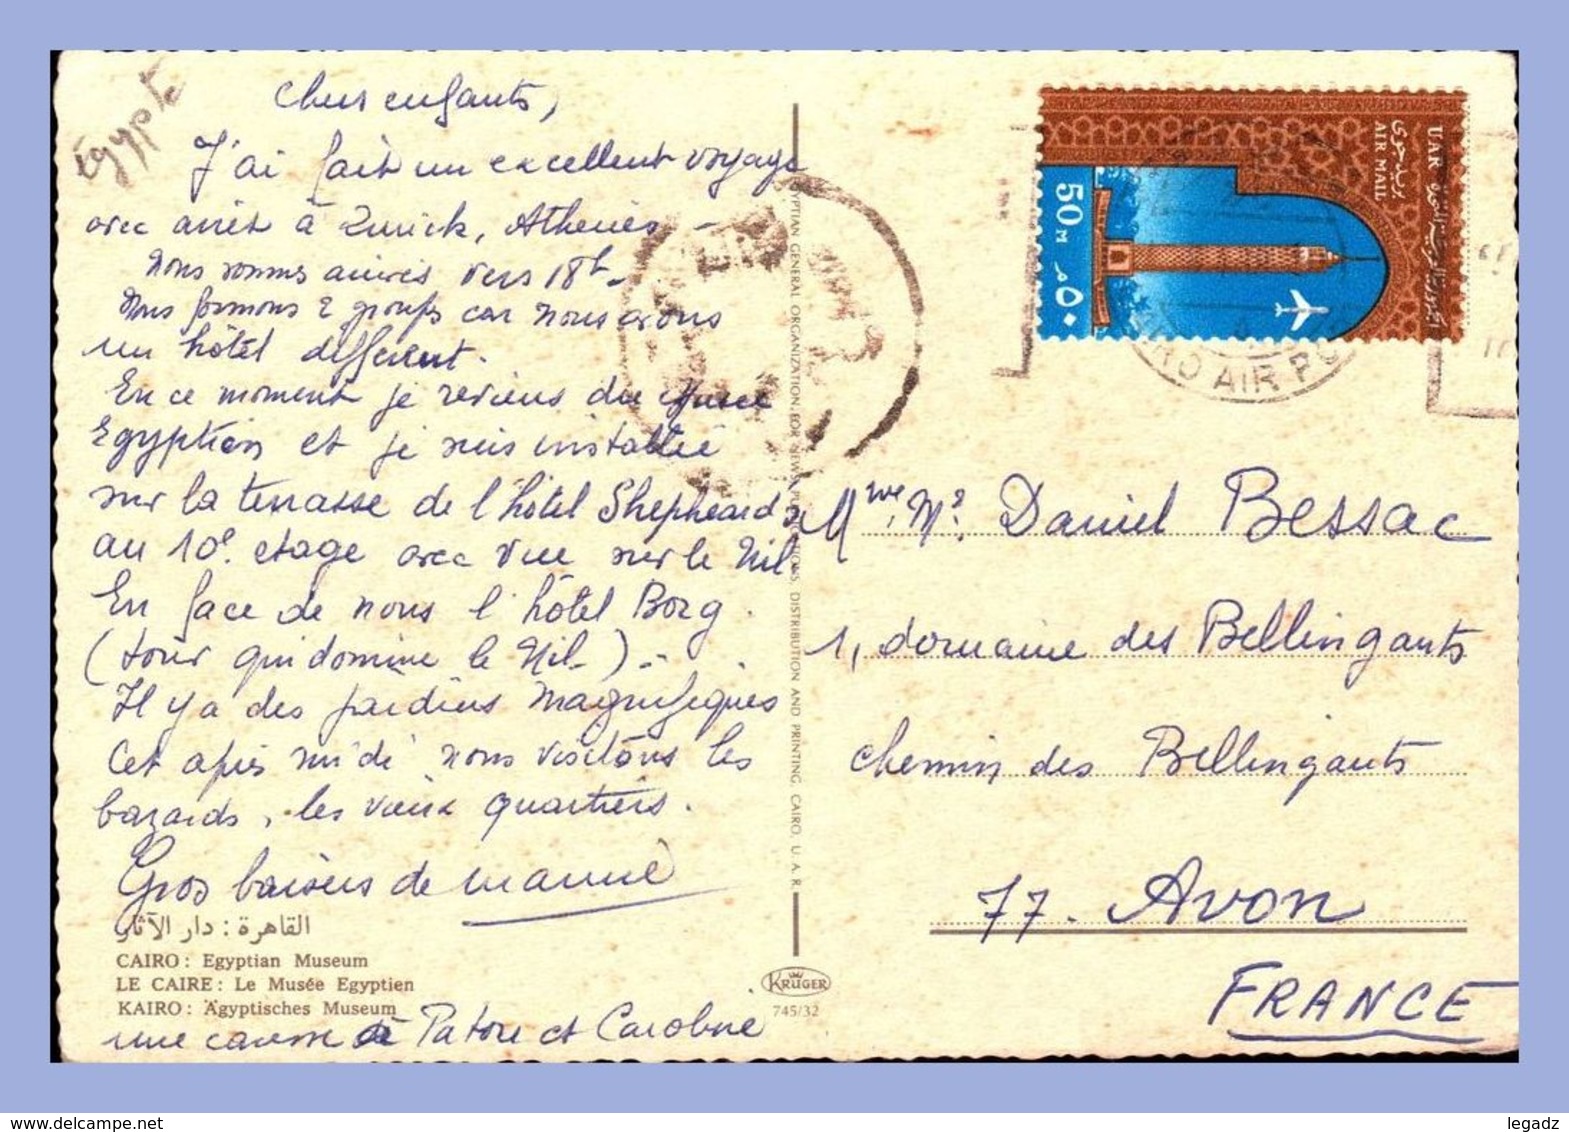 Égypte
Chers enfants,
J'ai fait un excellent voyage
avec arrêt à Zurick, Athènes -
Nous sommes arrivés vers 18h -
Nous formons 2 groupes car nous avons
un hôtel different.
En ce moment je reviens du musée
Egyptien et je suis installée
sur la terrasse de l'hôtel Shepheard
au 10e. etage avec vue sur le Nil
En face de nous l'hôtel Borg.
(tour qui domine le Nil-) -
Il y a des jardins magnifiques
Cet après midi nous visitons les
bazards, les vieux quartiers.
Gros baisers de mamie
القاهرة : دار الآثار
CAIRO : Egyptian Museum
LE CAIRE : Le Musée Egyptien
KAIRO : Ägyptisches Museum
une caresse à et Caroline
EGYPTIAN GENERAL ORGANIZATION FOR NEWS, PUBLICATIONS, DISTRIBUTION AND PRINTING, CAIRO, U. A. R.
KRÜGER
745/32
UAR
بريد جوى
AIR MAIL
الجمهورية العربية المتحدة
50 M
٥٠ م
CAIRO AIR PO
Mme, Mr. Daniel Bessac
1, domaine des Bellingants
chemin des Bellingants
77. Avon
FRANCE
delcampe.net
legadz